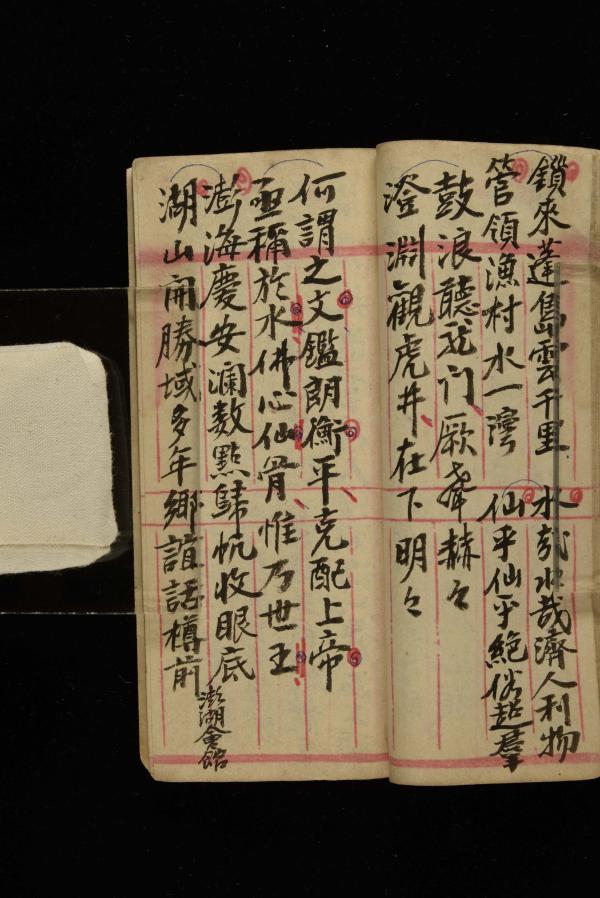 鎖來蓬島雲千里　水哉水哉濟人利物
管領漁村水一灣　仙乎仙乎絕俗超羣
鼓浪聽我门厥聲赫々
澄淵觀虎井在下明々
何謂之文鑑朗衡平克配上帝
亟稱於水佛心仙骨惟乃世王
澎海慶安瀾數點歸帆收眼底
湖山開勝域多年鄉誼話樽前
澎湖會館